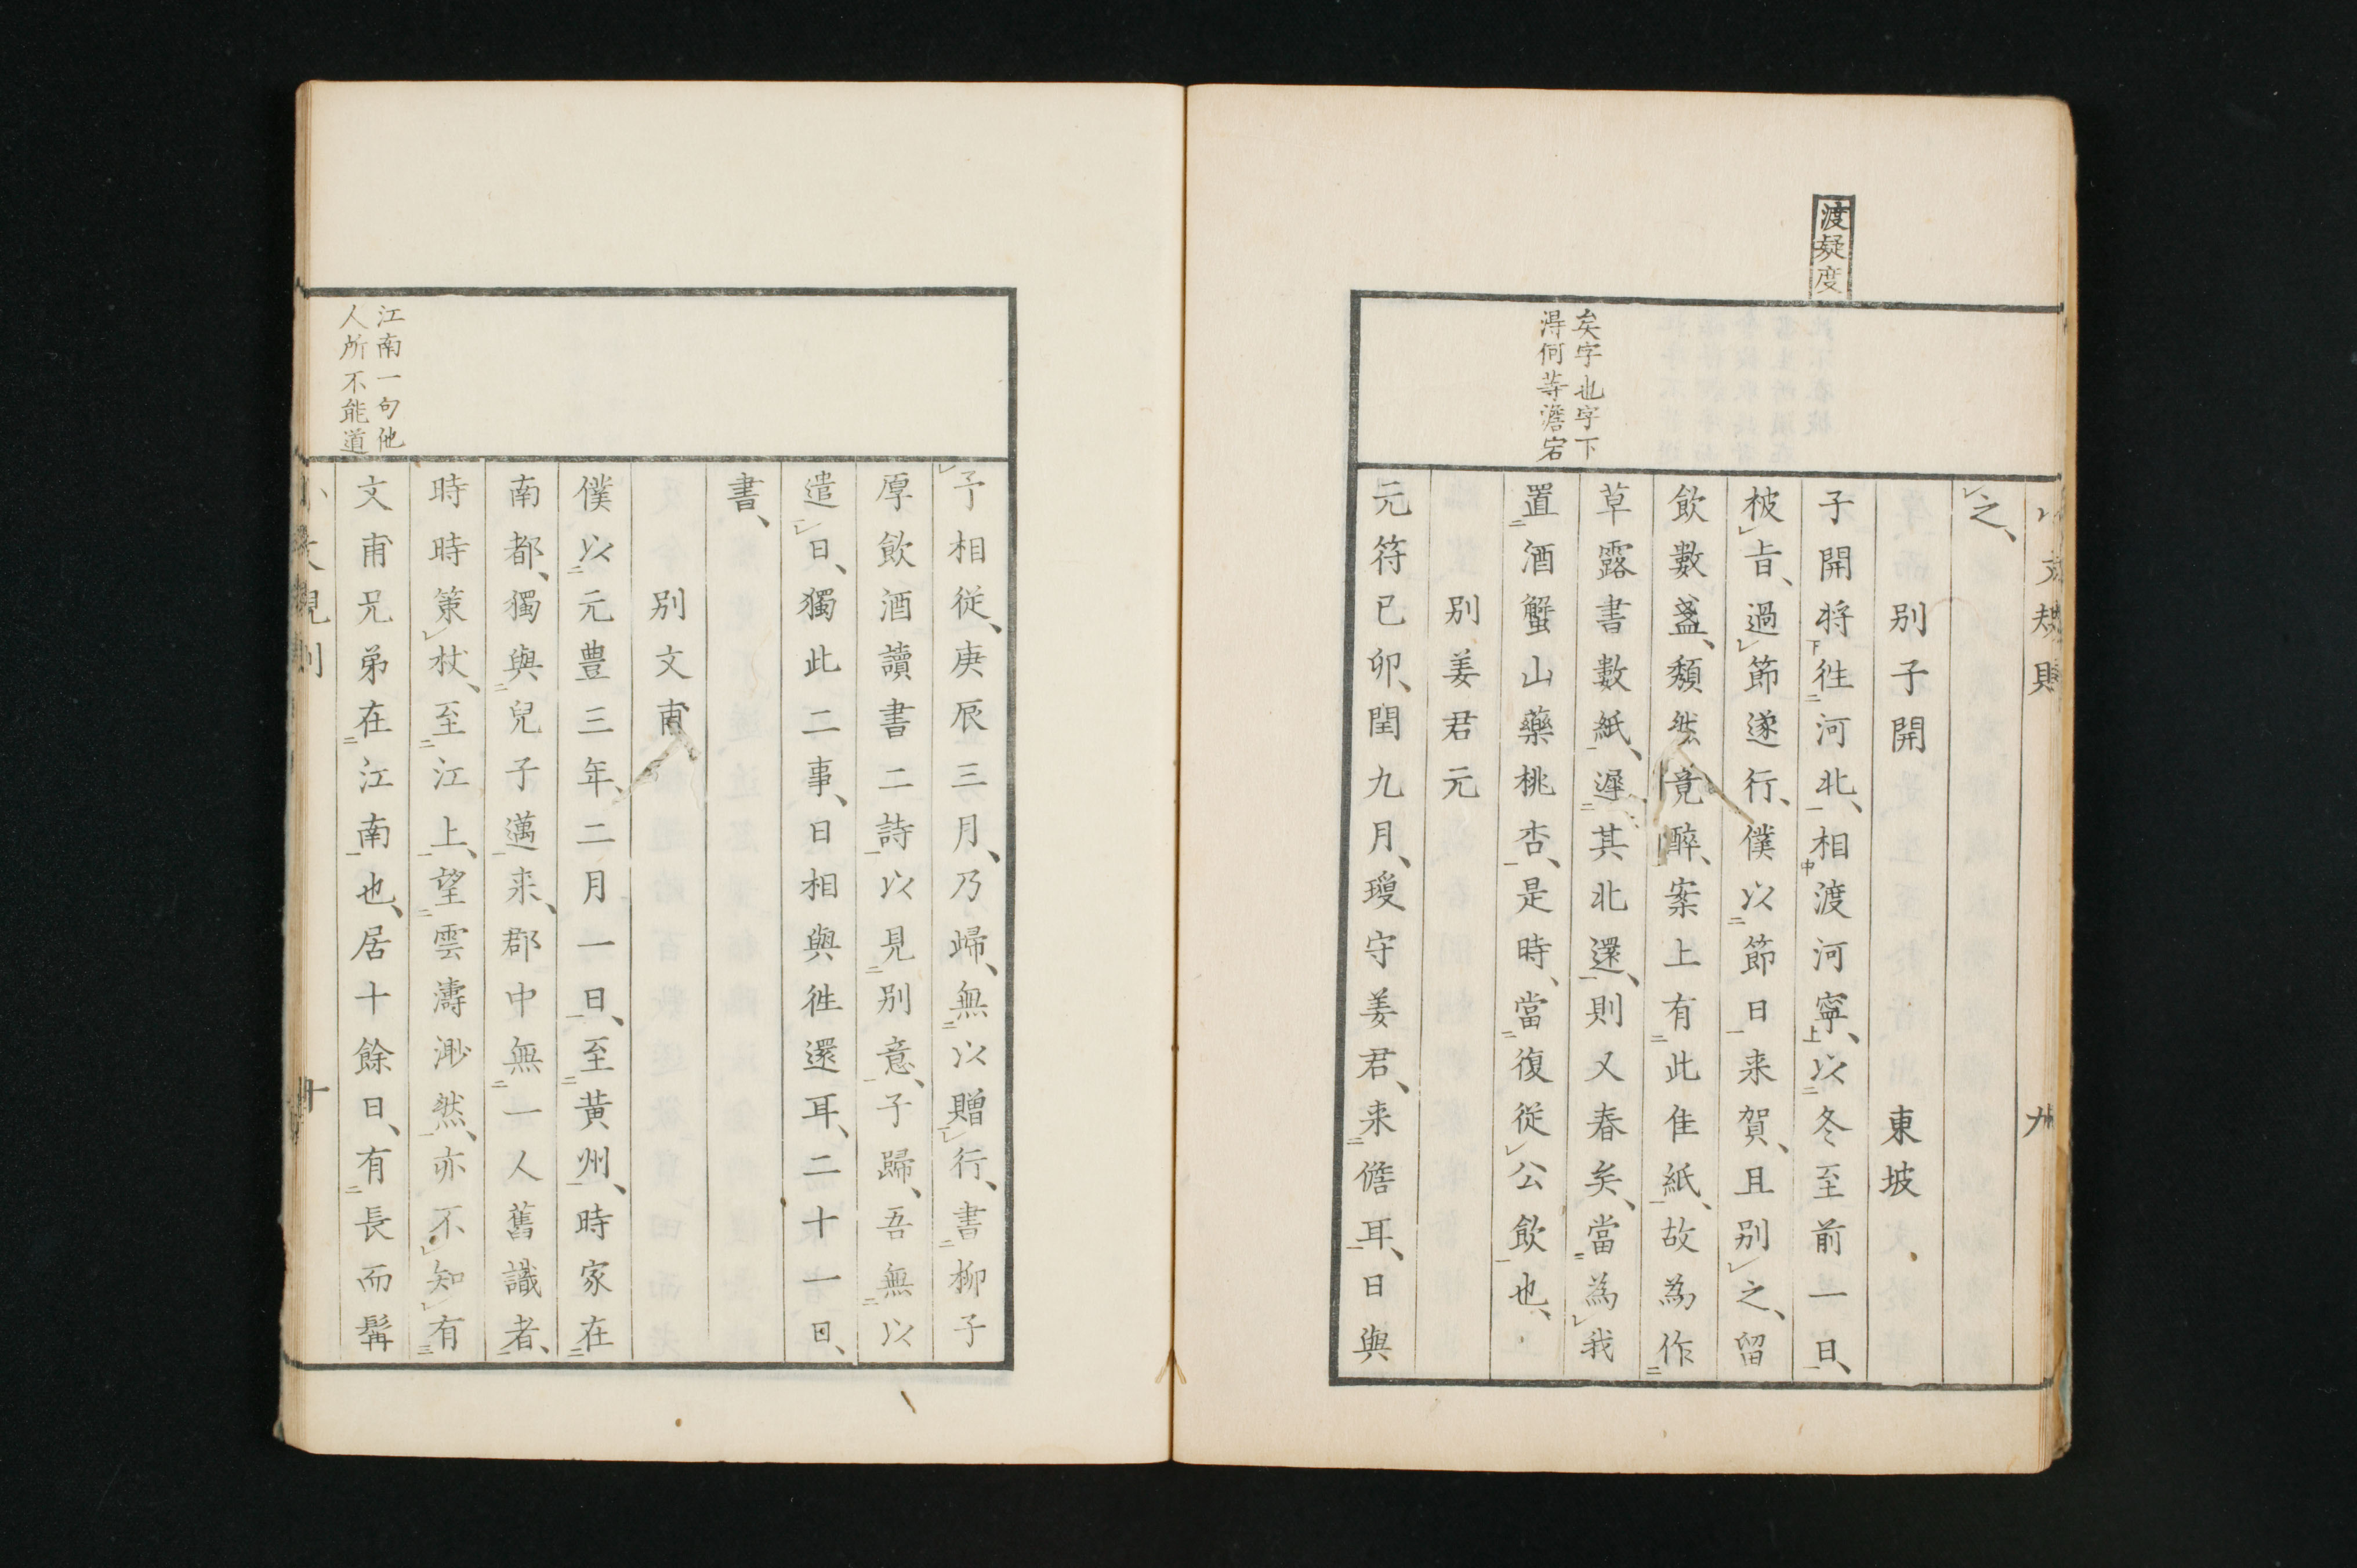 小文規則
九
之、
別子開
東坡
渡疑度
子開将徃河北、相渡河寧、以冬至前一日、
被旨、過節遂行、僕以節日来賀、且別之、留
飲數盞、頹然竟醉、案上有此佳紙、故為作
草露書數紙、遲其北還、則又春矣、當為我
矣字也字下
得何等澹宕
置酒蟹山藥桃杏、是時、當復従公飲也、
別姜君元
元符已卯、閏九月、瓊守姜君、来儋耳、日與
予相従、庚辰三月、乃歸、無以贈行、書柳子
厚飲酒讀書二詩以見別意、子歸、吾無以
遣日、獨此二事、日相與徃還耳、二十一日、
書、
別文甫
僕以元豊三年、二月一日、至黄州、時家在
南都、獨與兒子邁来、郡中無一人舊識者、
時時策杖、至江上、望雲濤渺然、亦不知有
江南一句他
人所不能道
文甫兄弟在江南也、居十餘日、有長而髯
小文規則
十